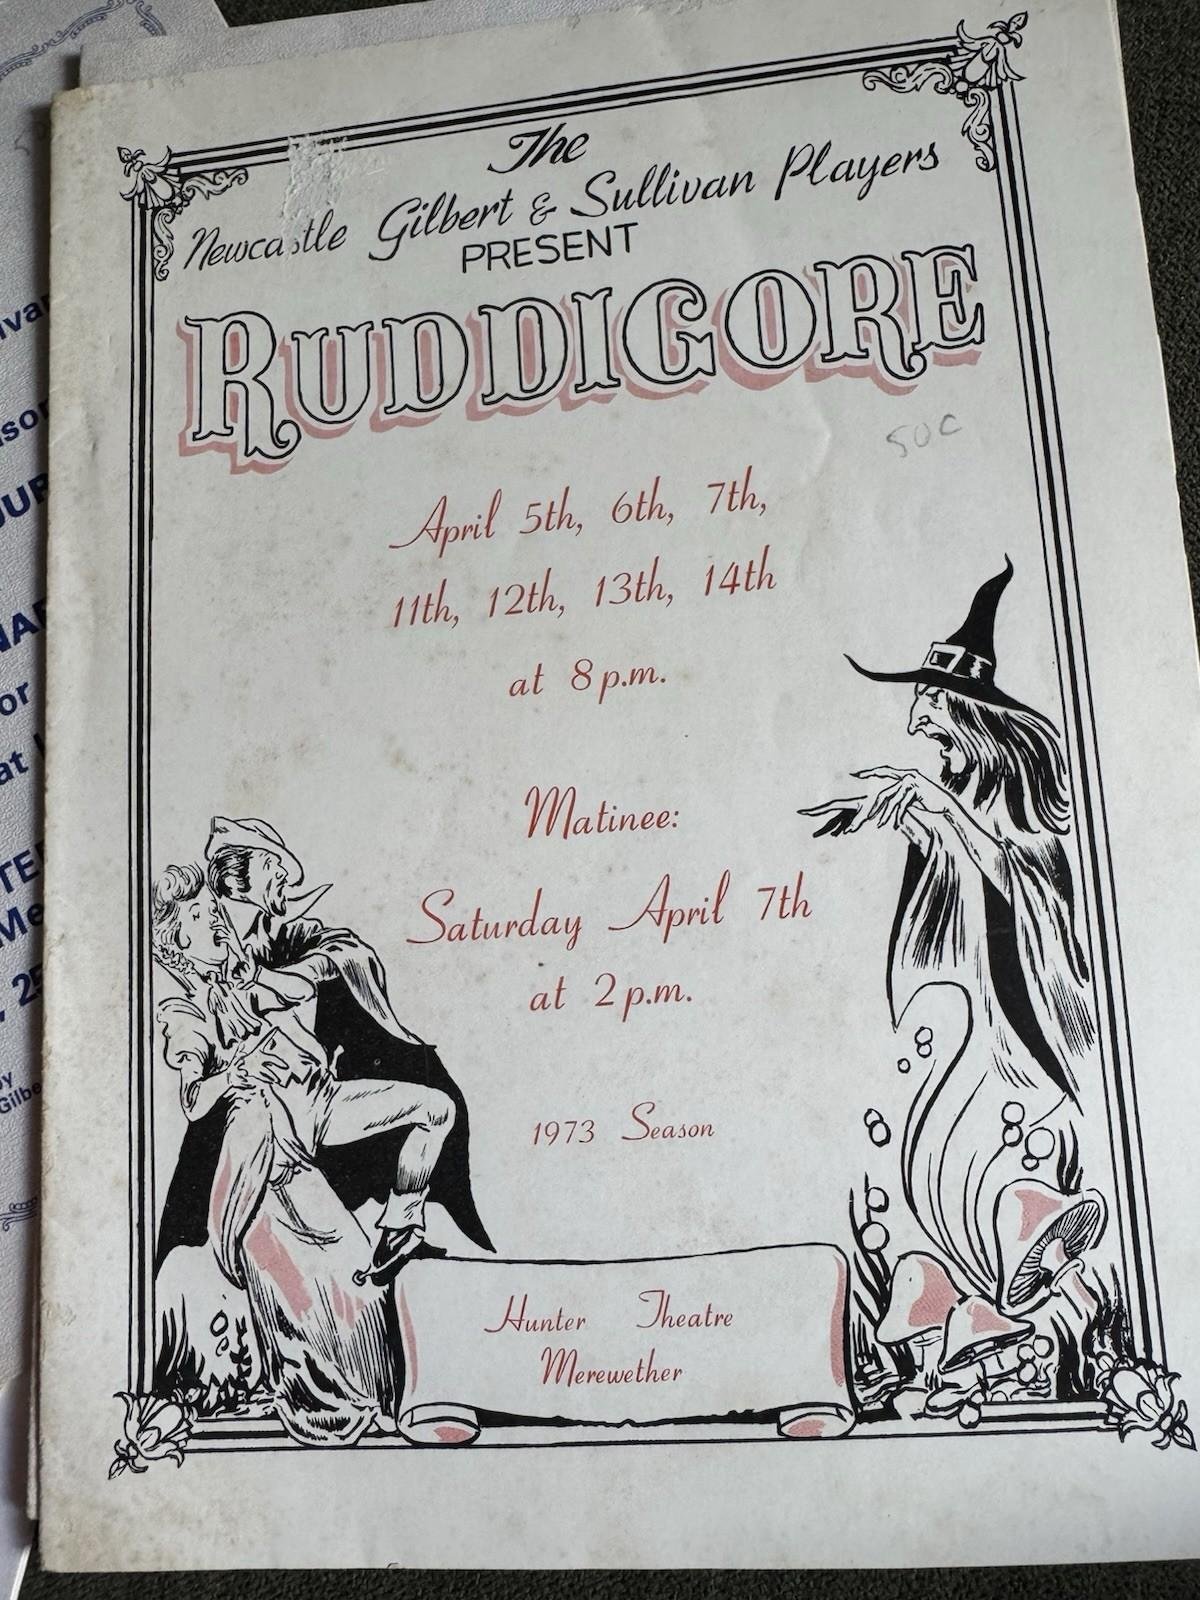 The
Newcastle Gilbert & Sullivan Players
PRESENT
RUDDIGORE
50c
April 5th, 6th, 7th,
11th, 12th, 13th, 14th
at 8 p.m.
Matinee:
Saturday April 7th
at 2 p.m.
1973 Season
Hunter Theatre
Merewether